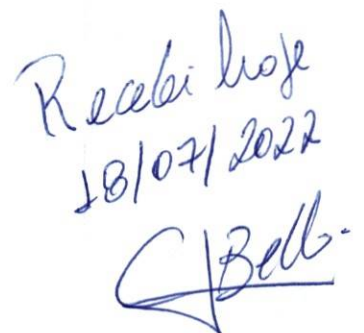 Recebi hoje
18/07/2022
GBello.